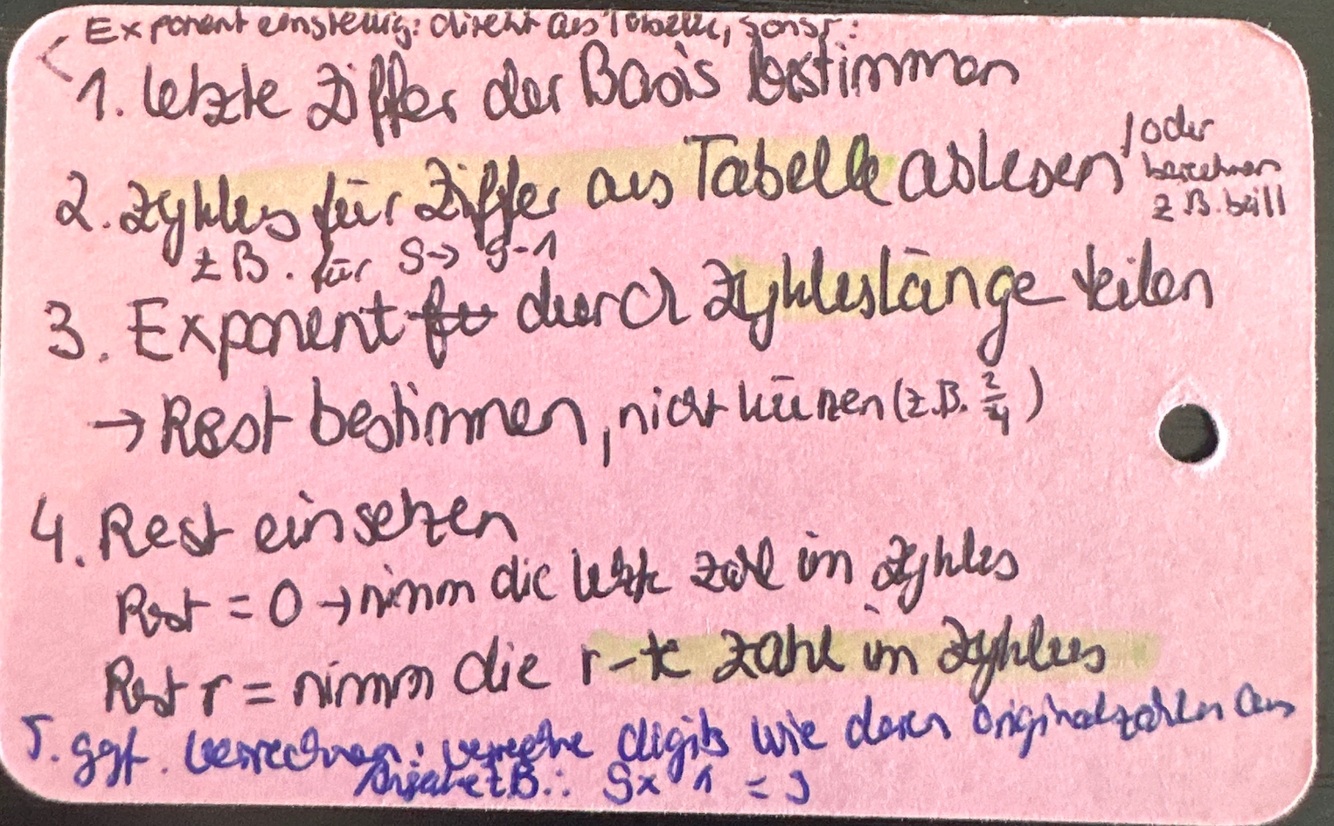 Exponent einstellig: direkt aus Tabelle, sonst:
1. letzte Ziffer der Basis bestimmen
2. Zyklus für Ziffer aus Tabelle ablesen / oder
berechnen
z.B. bei 11
z.B. für 9 → 9-1
3. Exponent durch Zykluslänge teilen
→ Rest bestimmen, nicht kürzen (z.B. 2/4)
4. Rest einsetzen
Rest = 0 → nimm die letzte Zahl im Zyklus
Rest r = nimm die r-te Zahl im Zyklus
5. ggf. verrechnen: verrechne digits wie deren Originalzahlen aus
Angabe z.B.: 9x 1 = 9